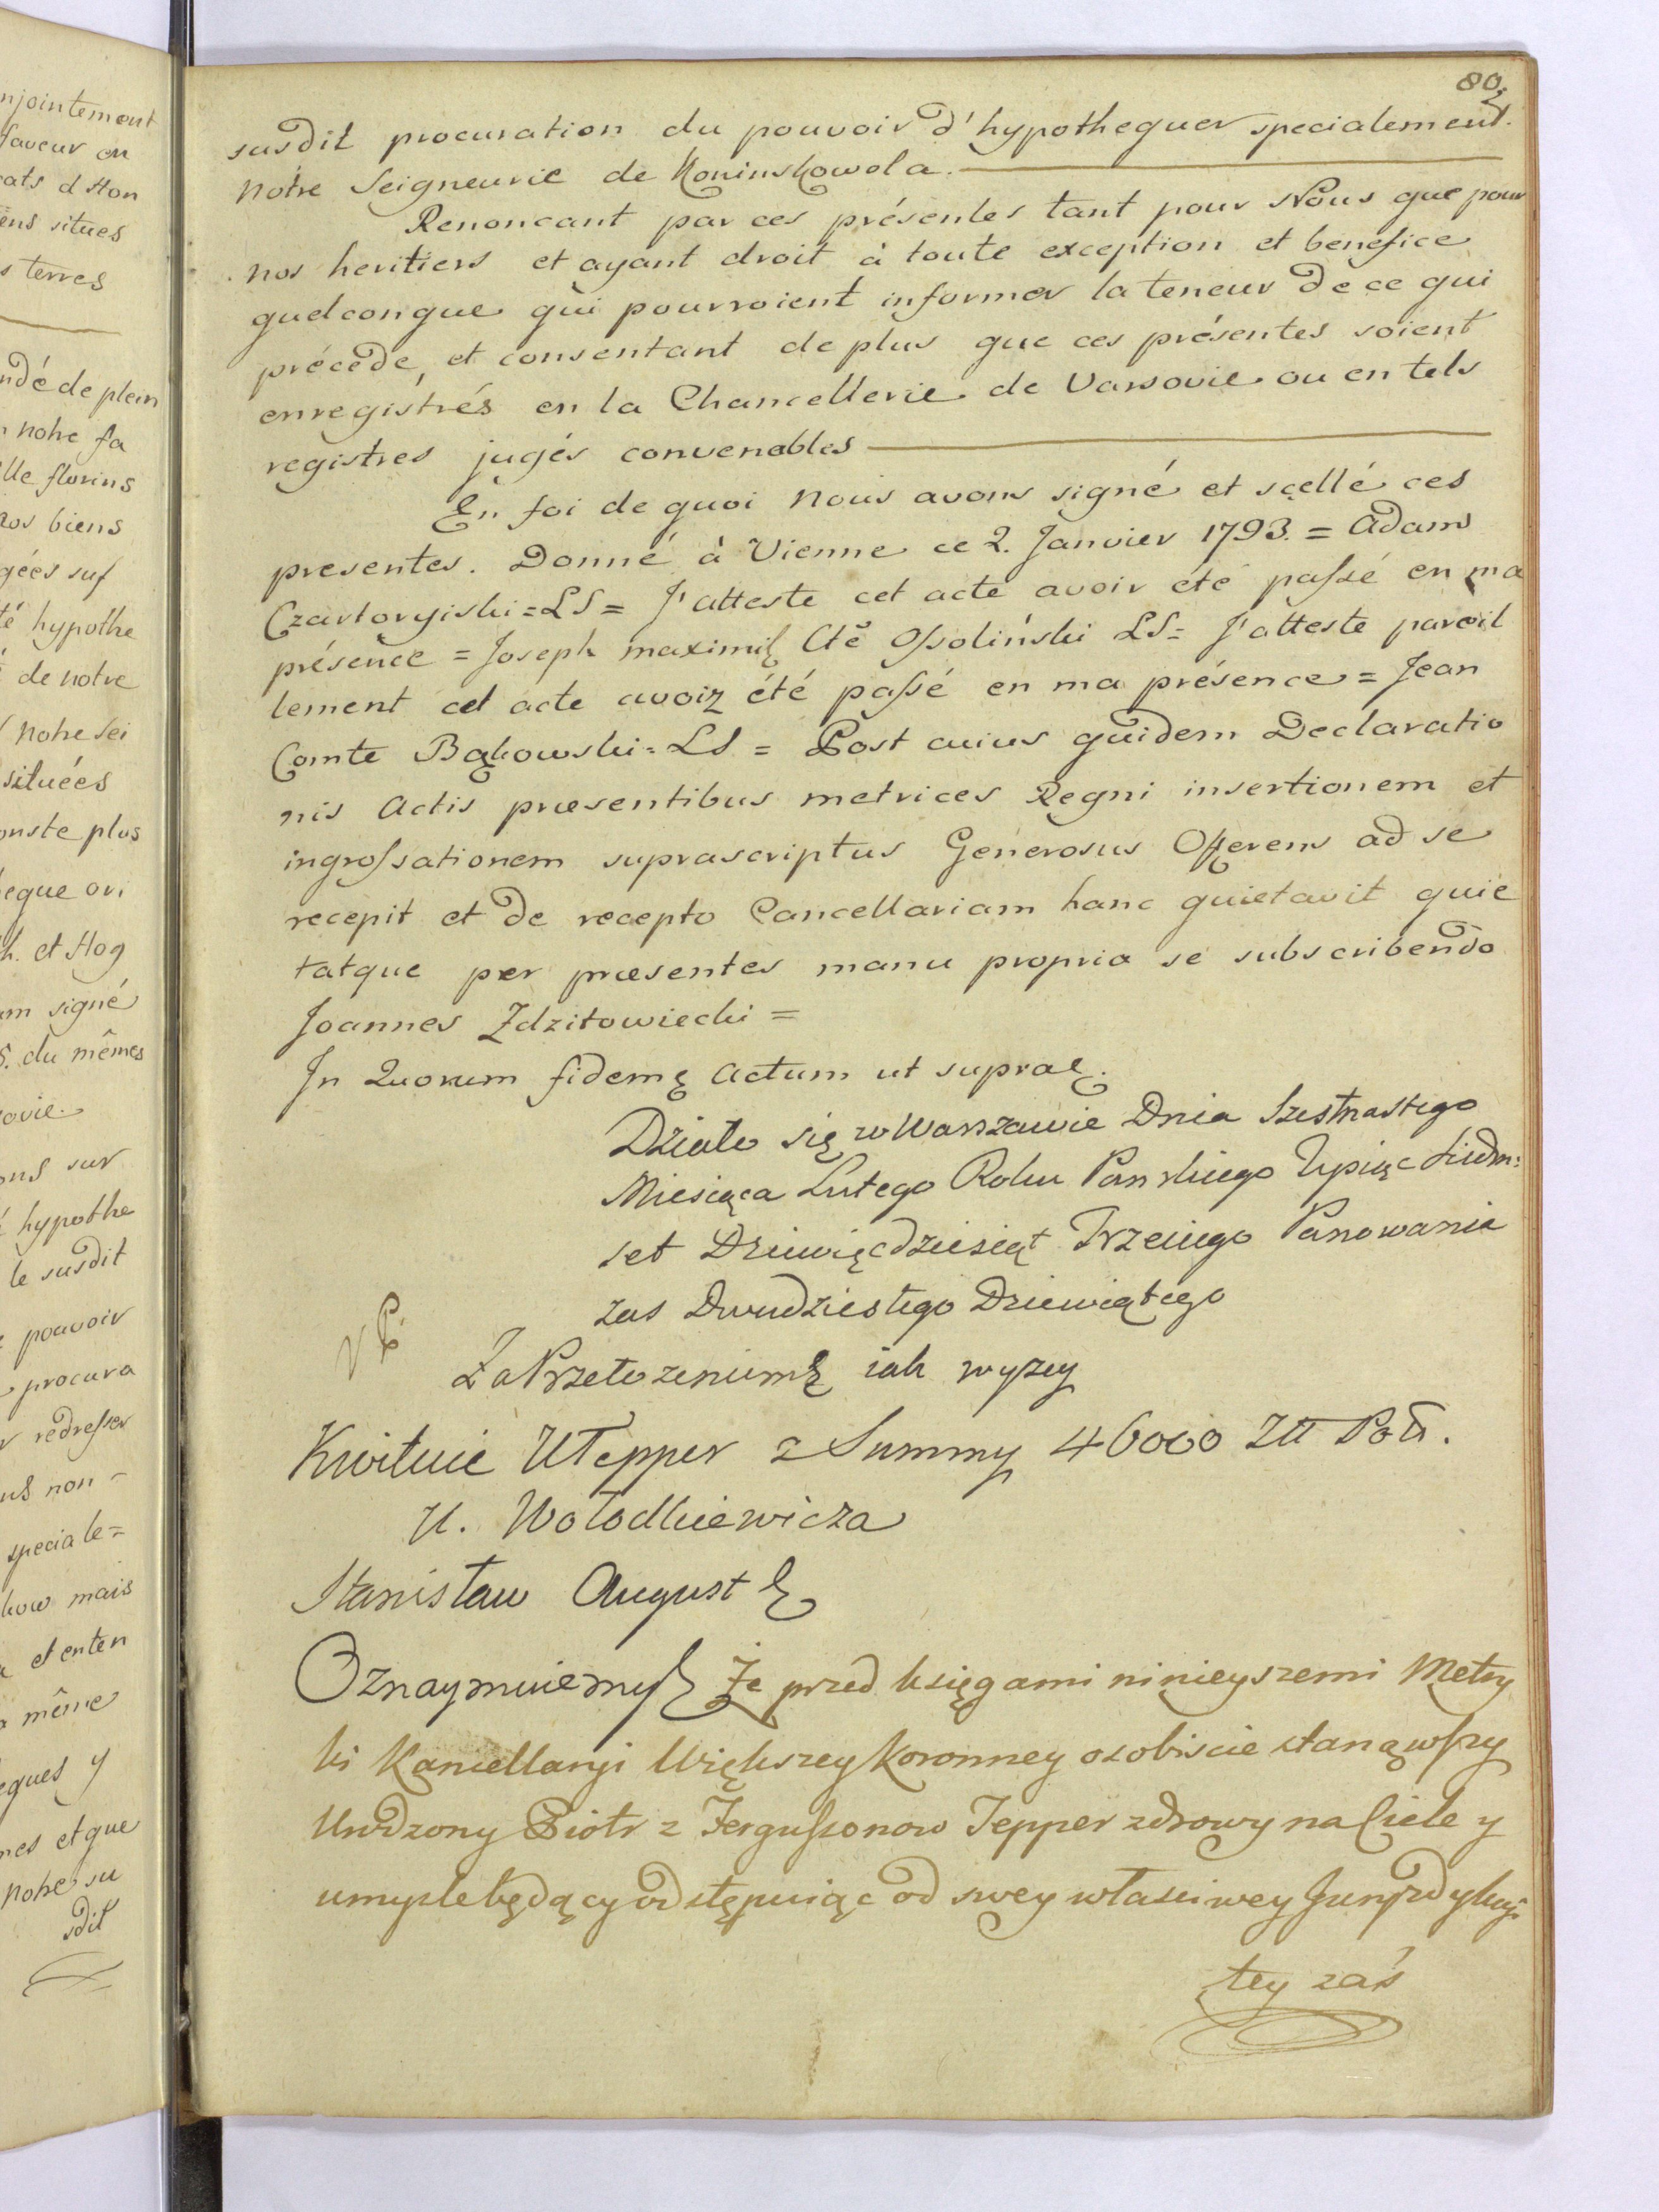 njointement
faveur en
cats d Hon
ens situes
s terres
ndé de plein
n notre fa
lle florins
nos biens
gées suf
té hypothe
é de notre
notre sei
situées
onste plus
egue ori
h. et Hog
um signé
S. du mêmes
ovie.
ons sur
é hypothe
le susdit
e pouvoir
procura
r redresser
us non -
speciale=
kow mais
a et enten
a même
eques y
nes et que
notre su
sdit
80.
susdit procuration du pouvoir d'hypothequer specialement.
notre Seigneurie de Koninskowola.
Renoncant par ces présentes tant pour Nous que pour
nos heritiers et ayant droit à toute exception et benefice
quelconque qui pourroient informer la teneur de ce qui
précede, et consentant de plus que ces présentes soient
enregistrés en la Chancellerie de Varsovie ou en tels
registres jugés convenables
En foi de quoi nous avons signé et scellé ces
presentes. Donné à Vienne ce 2. Janvier 1793. = Adam
Czartoryiski = LS = J'atteste cet acte avoir été passé en ma
présence = Joseph Maximil Cte Ossoliński LS = J'atteste pareil
lement cet acte avoir été passé en ma présence = Jean
Comte Bąkowski = LS = Post cuius quidem Declaratio
nis Actis præsentibus metrices Regni insertionem et
ingrossationem suprascriptus Generosus Offerens ad se
recepit et de recepto Cancellariam hanc quietavit quie
tatque per præsentes manu propria se subscribendo
Joannes Zdzitowiecki =
In Quorum fidem Actum ut supra.
Działo się w Warszawie Dnia Szesnastego
Miesiąca Lutego Roku Panskiego Tysiąc Siedm:
set Dziewięcdziesiąt Trzeciego Panowania
zas Dwudziestego Dziewiątego
Za Przełozenium iak wyzey
Kwituie UTepper z Summy 46000 Złł Pol.
U. Wołodkiewicza
Stanisław August
Oznaymuiemy Że przed księgami ninieyszemi Metry
ki Kancellaryi Większey Koronney osobiscie stanąwszy
Urodzony Piotr z Fergussonow Tepper zdrowy na Ciele y
umysle będący odstępuiąc od swey własciwey Juryzdykcyi
tey zaś